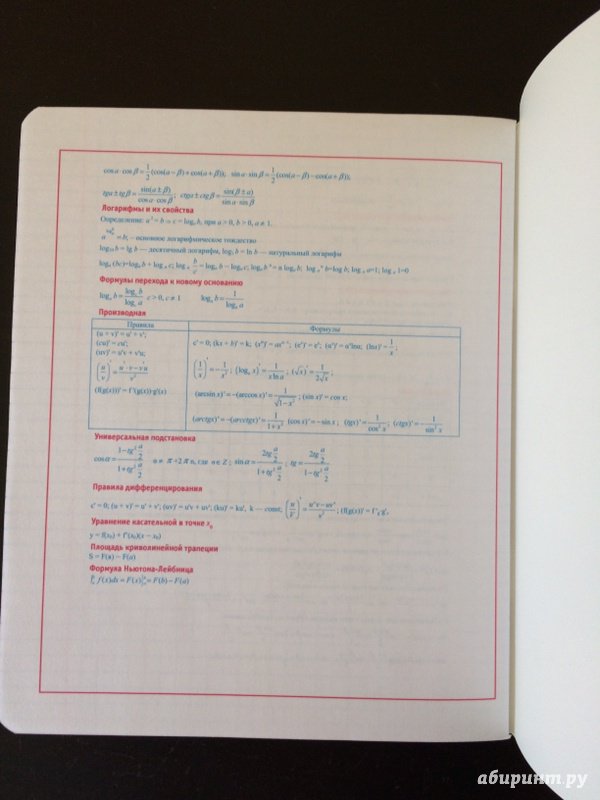 cos α · cos β = 1/2 (cos(α − β) + cos(α + β)); sin α · sin β = 1/2 (cos(α − β) − cos(α + β));
tgα ± tgβ = sin(α ± β)/(cos α · cos β); ctgα ± ctgβ = sin(β ± α)/(sin α · sin β)
Логарифмы и их свойства
Определение: a = b c = logₐ b, при a > 0, b > 0, a ≠ 1.
a = b, – основное логарифмическое тождество
log₁₀ b = lg b — десятичный логарифм, b = ln b — натуральный логарифм
logₐ (bc) = logₐ b + logₐ c; logₐ b/c = logₐ b − logₐ c; = n logₐ b; logₐ a=1; logₐ 1=0
Формулы перехода к новому основанию
logₐ b = log_c b / log_c a c > 0, c ≠ 1 logₐ b = 1/log_b a
Производная
Правила Формулы
(u + v)' = u' + v';
(cu)' = cu';
(uv)' = u'v + v'u;
(u/v)' = (u'·v − v'u)/v²
(f(g(x)))' = f'(g(x))·g'(x)
c' = 0; (kx + b)' = k; (xⁿ)' = axⁿ⁻¹; (eˣ)' = eˣ; (aˣ)' = aˣlna; (lnx)' = 1/x;
(1/x)' = −1/x²; (logₐ x)' = 1/(x ln a); (√x)' = 1/(2√x);
(arcsin x)' = −(arccos x)' = 1/√(1−x²); (sin x)' = cos x;
(arctgx)' = −(arcctgx)' = 1/(1+x²) (cos x)' = −sin x; (tgx)' = 1/cos² x; (ctgx)' = −1/sin² x
Универсальная подстановка
cos α = (1−tg² a/2)/(1+tg² a/2) α ≠ π +2π n, где n∈Z; sin α = (2tg a/2)/(1+tg² a/2); tg = (2tg a/2)/(1−tg² a/2)
Правила дифференцирования
c' = 0; (u + v)' = u' + v'; (uv)' = u'v + uv'; (ku)' = ku', k — const; (u/v)' = (u'v−uv')/v²; (f(g(x))' = f'·g',
Уравнение касательной в точке x₀
y = f(x₀) + f'(x₀)(x − x₀)
Площадь криволинейной трапеции
S = F(в) − F(a)
Формула Ньютона-Лейбница
∫ₐᵇ f(x)dx = F(x)|ₐᵇ = F(b) − F(a)
абиринт.ру